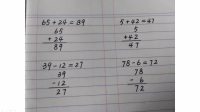 65 + 24 = 89
65
+ 24
89
5 + 42 = 47
5
+ 42
47
39 - 12 = 27
39
- 12
27
78 - 6 = 72
78
- 6
72